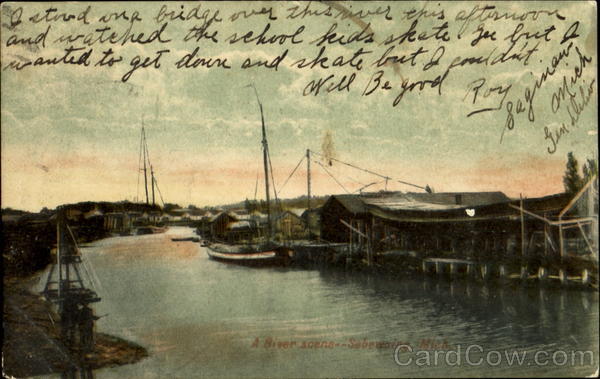 I stood on a bridge over this river this afternoon
and watched the school kids skate Gee but I
wanted to get down and skate but I couldn't.
Well Be good Roy
Saginaw
Mich
Gen
A River scene--Sebewaing, Mich.
CardCow.com